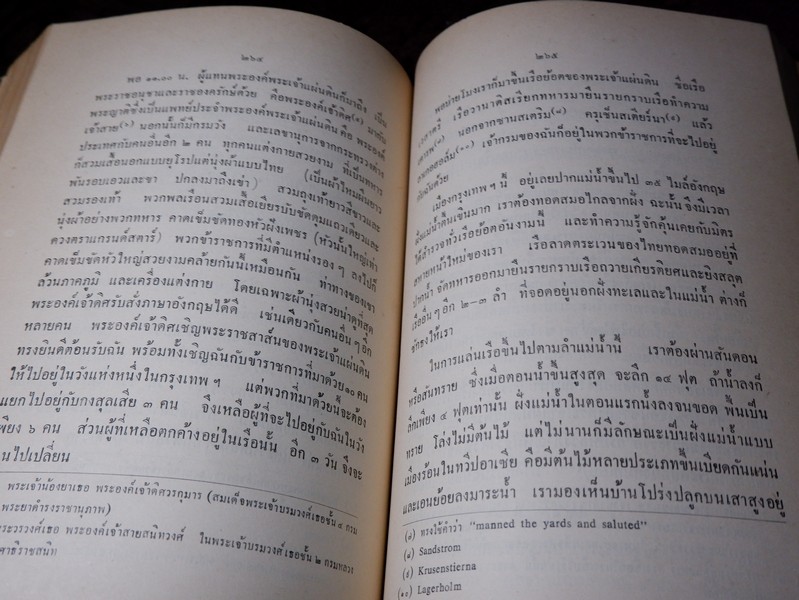 ๒๖๔
พอ ๑๑.๐๐ น. ผู้แทนพระองค์พระเจ้าแผ่นดินก็มาถึง เป็น
พระราชอนุชาและราชองครักษ์ด้วย คือพระองค์เจ้าดิศ มากับ
พระญาติซึ่งเป็นแพทย์ประจำพระองค์พระเจ้าแผ่นดิน คือ พระองค์
เจ้าสาย นอกนั้นก็มีกรมวัง และเลขานุการจากกระทรวงต่าง
ประเทศกับคนอื่นอีก ๒ คน ทุกคนแต่งกายสวยงาม ที่เป็นทหาร
ก็สวมเสื้อนอกแบบยุโรปแต่นุ่งผ้าแบบไทย (เป็นผ้าไหมผืนยาว
พันรอบเอวและขา ปกลงมาถึงเข่า) สวมถุงเท้ายาวสีขาวและ
สวมรองเท้า พวกพลเรือนสวมเสื้อเยียรบับขัดดุมแถวเดียวและ
นุ่งผ้าอย่างพวกทหาร คาดเข็มขัดทองหัวฝังเพชร (หัวนั้นใหญ่เท่า
ดวงตราแกรนด์สตาร์) พวกข้าราชการที่มีตำแหน่งรอง ๆ ลงไปก็
คาดเข็มขัดหัวใหญ่สวยงามคล้ายกันนี้เหมือนกัน ท่าทางของเขา
ล้วนภาคภูมิ และเครื่องแต่งกาย โดยเฉพาะผ้านุ่งสวยน่าดูที่สุด
พระองค์เจ้าดิศรับสั่งภาษาอังกฤษได้ดี เช่นเดียวกับคนอื่น ๆ อีก
หลายคน พระองค์เจ้าดิศเชิญพระราชสาส์นของพระเจ้าแผ่นดิน
ทรงยินดีต้อนรับฉัน พร้อมทั้งเชิญฉันกับข้าราชการที่มาด้วย ๑๐ คน
ให้ไปอยู่ในวังแห่งหนึ่งในกรุงเทพ ฯ แต่พวกที่มาด้วยนี้จะต้อง
แยกไปอยู่กับกงสุลเสีย ๓ คน จึงเหลือผู้ที่จะไปอยู่กับฉันในวัง
เพียง ๖ คน ส่วนผู้ที่เหลือตกค้างอยู่ในเรือนั้น อีก ๓ วัน จึงจะ
นไปเปลี่ยน
พระเจ้าน้องยาเธอ พระองค์เจ้าดิศวรกุมาร (สมเด็จพระเจ้าบรมวงศ์เธอชั้น ๔ กรม
พระยาดำรงราชานุภาพ)
พระวรวงศ์เธอ พระองค์เจ้าสายสนิทวงศ์ ในพระเจ้าบรมวงศ์เธอชั้น ๒ กรมหลวง
ศาธิราชสนิท
๒๖๕
พอบ่ายโมงเราก็มาขึ้นเรือยอดของพระเจ้าแผ่นดิน ชื่อเรือ
เรือวานาดิสเรียกทหารมายืนรายกราบเรือทำความ
นอกจากซานสเตริม(๘) ครุเซ็นสเตียร์นา(๙) แล้ว
เจ้ากรมของฉันก็อยู่ในพวกข้าราชการที่จะไปอยู่
กับฉันด้วย
เมืองกรุงเทพ ฯ นี้ อยู่เลยปากแม่น้ำขึ้นไป ๓๕ ไมล์อังกฤษ
แม่น้ำตื้นเขินมาก เราต้องทอดสมอไกลจากฝั่ง ฉะนั้นจึงมีเวลา
ได้สำรวจทั่วเรือยอดอันงามนี้ และทำความรู้จักคุ้นเคยกับมิตร
สหายหน้าใหม่ของเรา เรือลาดตระเวนของไทยทอดสมออยู่ที่
ปากน้ำ จัดทหารออกมายืนรายกราบเรือถวายเกียรติยศและยิงสลุต
เรืออื่น ๆ อีก ๒-๓ ลำ ที่จอดอยู่นอกฝั่งทะเลและในแม่น้ำ ต่างก็
ชักธงให้เรา
ในการแล่นเรือขึ้นไปตามลำแม่น้ำนี้ เราต้องผ่านสันดอน
หรือสันทราย ซึ่งเมื่อตอนน้ำขึ้นสูงสุด จะลึก ๑๔ ฟุต ถ้าน้ำลงก็
ลึกเพียง ๔ ฟุตเท่านั้น ฝั่งแม่น้ำในตอนแรกนั้งลงจนขอด พื้นเป็น
ทราย โล่งไม่มีต้นไม้ แต่ไม่นานก็มีลักษณะเป็นฝั่งแม่น้ำแบบ
เมืองร้อนในทวีปอาเซีย คือมีต้นไม้หลายประเภทขึ้นเบียดกันแน่น
และเอนย้อยลงมาระน้ำ เรามองเห็นบ้านโปร่งปลูกบนเสาสูงอยู่
(๗) ทรงใช้คำว่า "manned the yards and saluted"
(๘) Sandstrom
(๙) Krusenstierna
(๑๐) Lagerholm